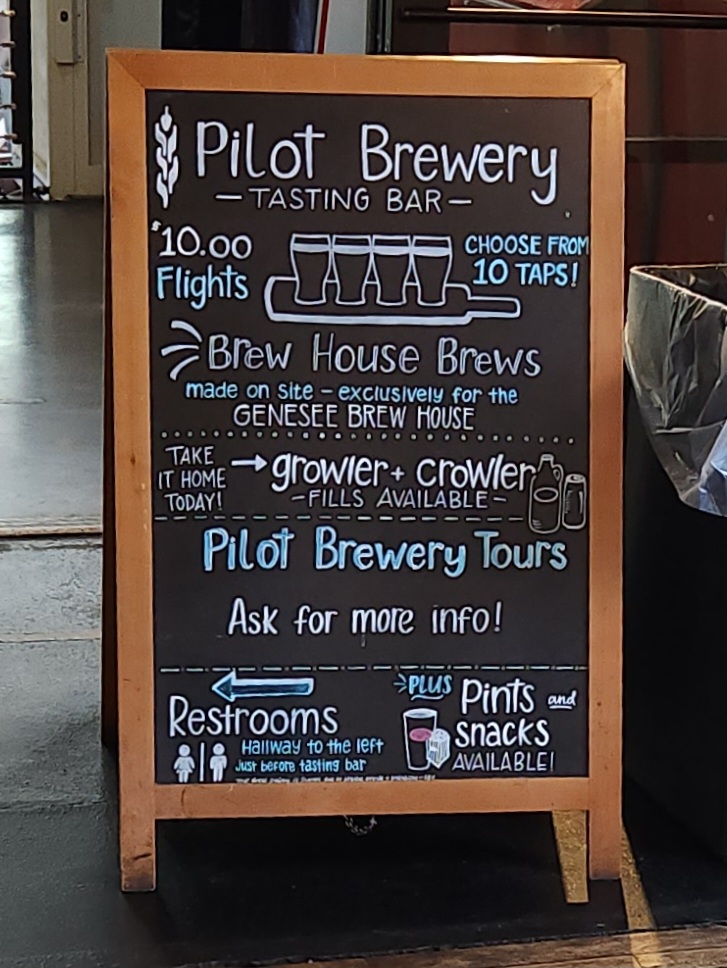 Pilot Brewery
— TASTING BAR —
$10.00
Flights
CHOOSE FROM
10 TAPS!
Brew House Brews
made on site – exclusively for the
GENESEE BREW HOUSE
TAKE
IT HOME
TODAY!
→ growler + crowler
– FILLS AVAILABLE –
Pilot Brewery Tours
Ask for more info!
Restrooms
Hallway to the left
Just before tasting bar
PLUS
Pints and
snacks
AVAILABLE!